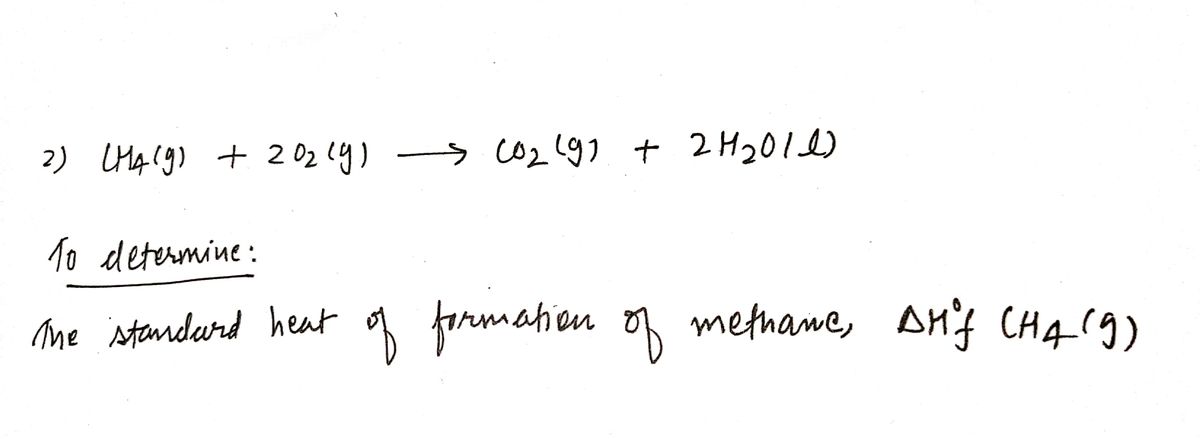 2) CH4(g) + 2O2(g) → CO2(g) + 2H2O(l)
To determine:
The standard heat of formation of methane, ΔH°f CH4(g)